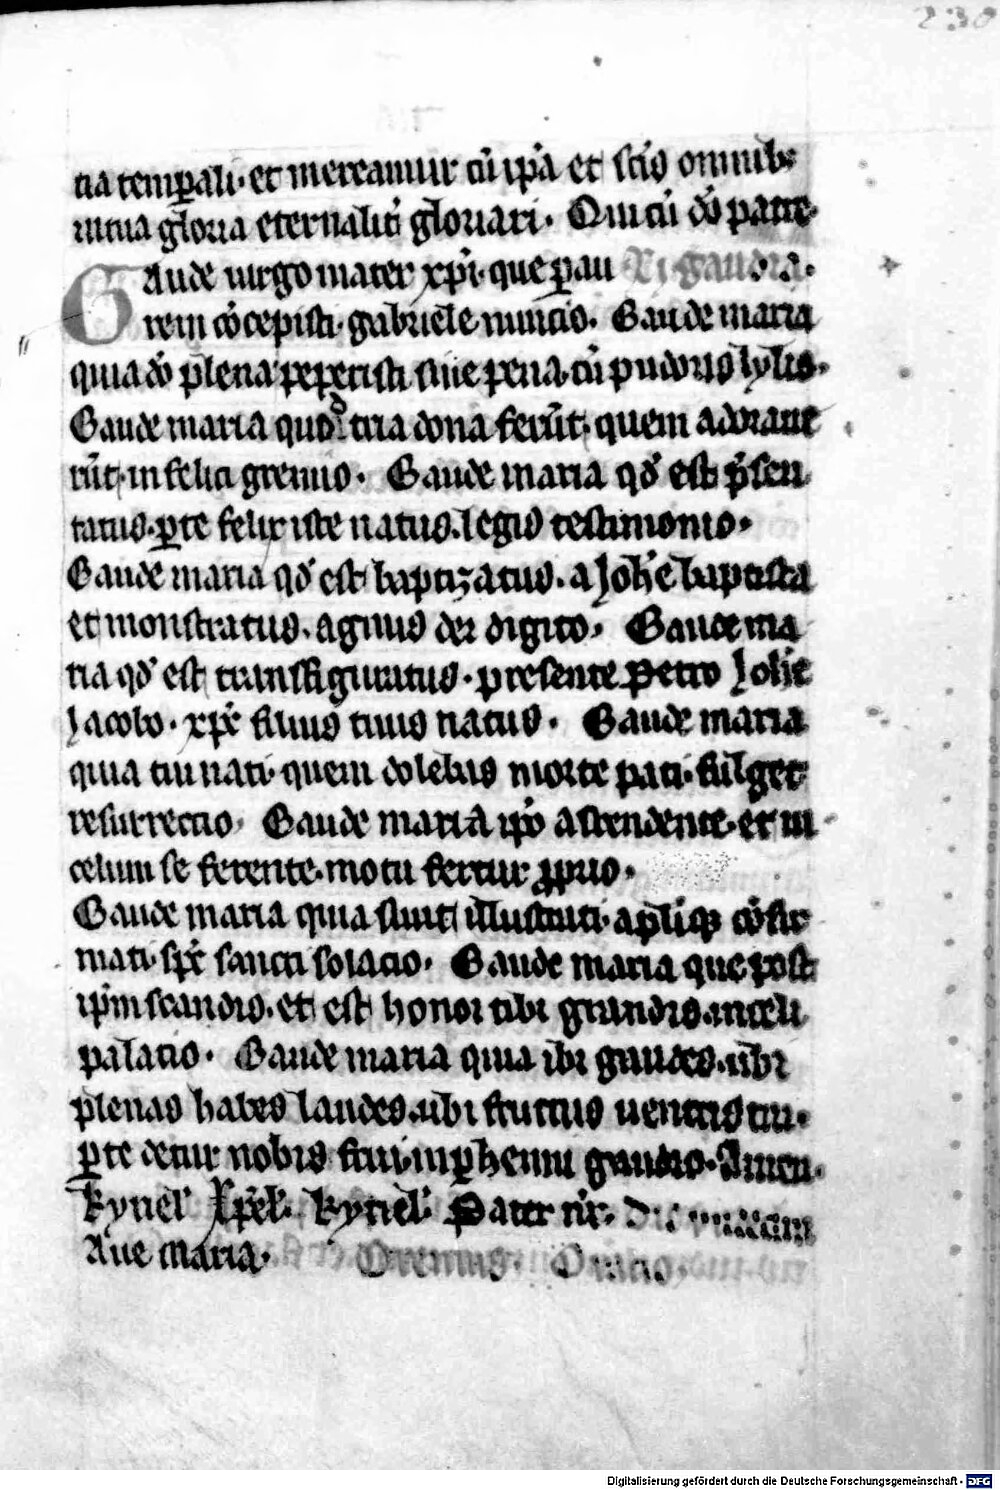 230
tia temp̄ali· et mereamur cū ip̄a et sc̄is omnib;
in tua gl̄oria eternalit̄ gloriari· Qui cū dō patre·
Gaude uirgo mater xp̄i· que p̄ au Xi gaudia·
rem cōcepisti· gabriele nuncio· Gaude maria
quia dō plena peperisti sine pena cū pudoris lylio·
Gaude maria quod tria dona ferūt· quem adoraue
rūt· in felici gremio· Gaude maria qđ est p̄sen
tatus· p̄ te felix iste natus· legis testimonio·
Gaude maria qđ est baptizatus· a Joh̄e baptista
et monstratus· agnus dei digito· Gaude ma
ria qđ est transfiguratus· presente Petro Joh̄e
Jacobo· xp̄c filius tuus natus· Gaude maria
quia tui nati· quem dolebas morte pati· fulget
resurrectio· Gaude maria ip̄o ascendente· et in
celum se ferente· motu fertur p̄prio·
Gaude maria quia sunt illustrati· apl̄iq; cōfir
mati· sp̄c sancti solacio· Gaude maria que post
ip̄m scandis· et est honor tibi grandis· in celi
palatio· Gaude maria quia ibi gaudes· ubi
plenas habes laudes· ubi fructus uentris tui·
p̄ te detur nobis frui· in p̄henni gaudio· Amen·
kyriel̄ Xp̄el̄· kyriel̄· Pater nr̄·
Aue maria· Oremus· Oratio
Digitalisierung gefördert durch die Deutsche Forschungsgemeinschaft - DFG